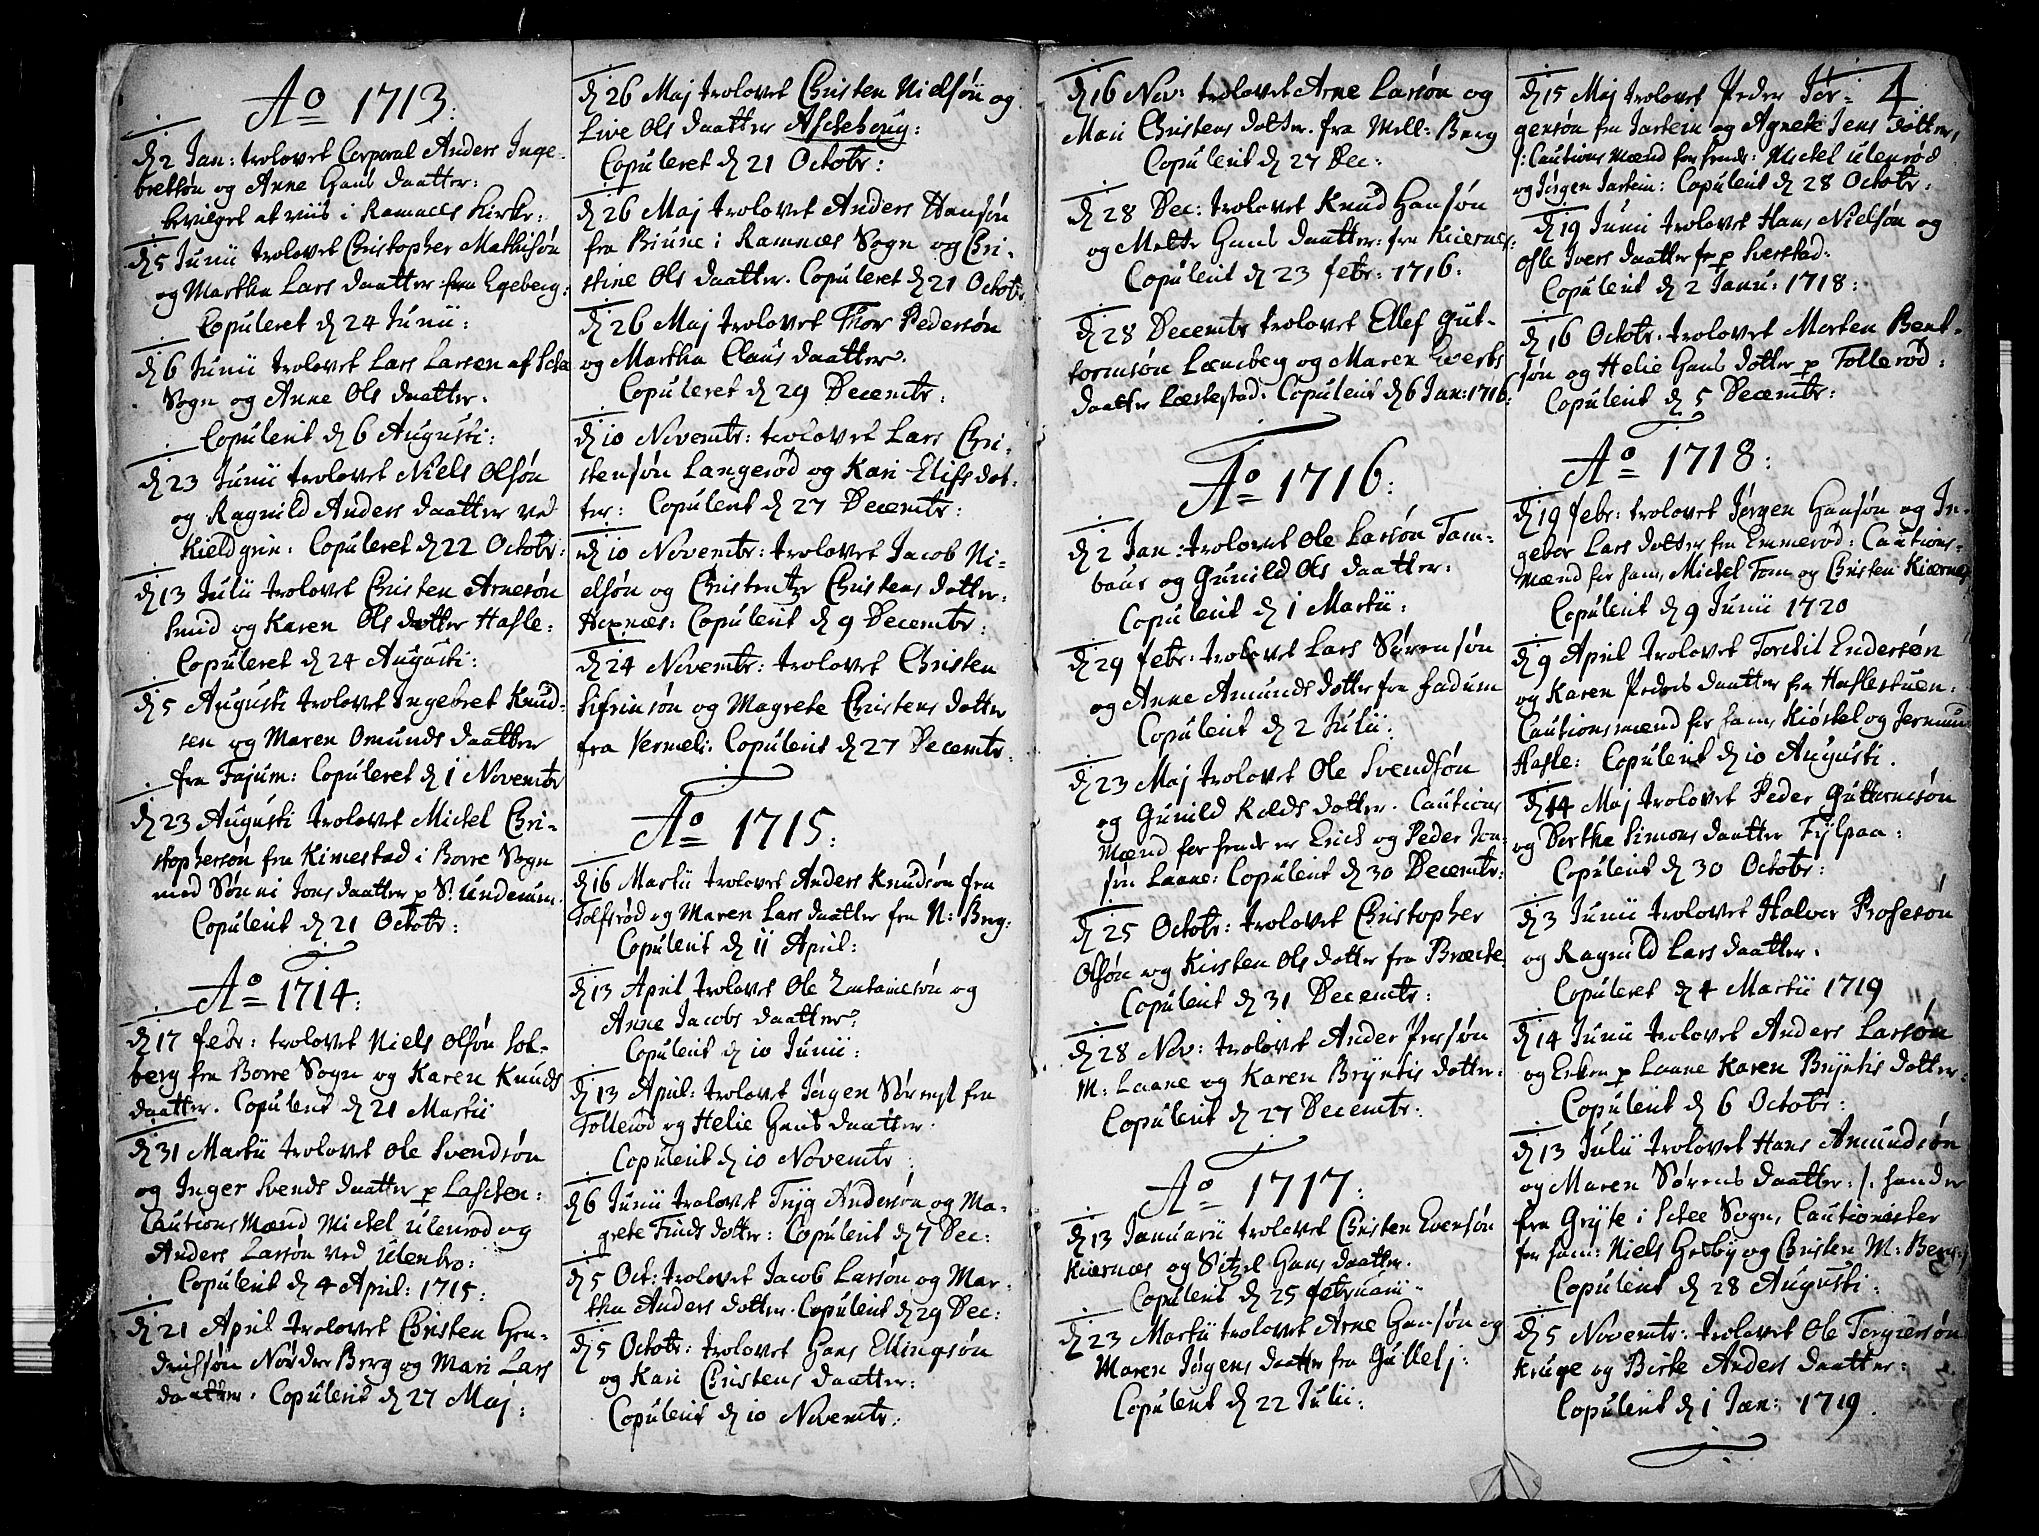 Ao 1713:
d 2 Jan: trolovet Corporal Anders Inge-
bretsøn og Anne Hans daatter:
bevilget at viis i Ramnes Kirke:
d 5 Junii trolovet Christopher Mathisøn
og Martha Lars daatter fra Egeberg:
Copuleret d 24 Junii:
d 6 Junii trolovet Lars Larsen af Sche
Sogn og Anne Ols daatter.
Copulerit d 6 Augusti:
d 23 Junii trolovet Niels Olsøn
og Ragnild Anders daatter ved
Kieldgrin: Copuleret d 22 Octobr:
d 13 Julii trolovet Christen Arnesøn
Smid og Karen Ols datter Hasle:
Copuleret d 24 Augusti:
d 5 Augusti trolovet Ingebret Knud-
sen og Maren Omunds daatter
fra Fajum: Copuleret d 1 Novembr
d 23 Augusti trolovet Michel Chri-
stophersøn fra Kimestad i Borre Sogn
med Sønni Jons daatter p S. Underum.
Copulerit d 21 Octobr:
Ao 1714:
d 17 febr: trolovet Niels Olsøn Sol-
berg fra Borre Sogn og Karen Knuds
daatter. Copulerit d 21 Martii
d 31 Martii trolovet Ole Svendsøn
og Inger Svends daatter p Laschen:
Cautions Mænd Michel Ulenrød og
Anders Larsøn ved Ulenbro:
Copulerit d 4 April: 1715:
d 21 April trolovet Christen Hen-
drichsøn Nørdre Berg og Mari Lars
daatter. Copulerit d 27 Maj:
d 26 Maj trolovet Christen Nielsøn og
Live Ols daatter Ascheberg:
Copuleret d 21 Octobr:
d 26 Maj trolovet Anders Hansøn
fra Biune i Ramnæs Sogn og Chri-
stine Ols daatter. Copuleret d 21 Octobr
d 26 Maj trolovet Thor Pedersøn
og Martha Claus daatter.
Copuleret d 29 Decembr:
d 10 Novembr: trolovet Lars Chri-
stensøn Langerød og Kari Elifs dat-
ter: Copulerit d 27 Decembr:
d 10 Novembr: trolovet Jacob Ni-
elsøn og Christentze Christens datter:
Aepnæs: Copulerit d 9 Decembr:
d 24 Novembr: trolovet Christen
Sifrinsøn og Magrete Christens datter
fra Vermeli: Copulerit d 27 Decembr.
Ao 1715:
d 16 Martii trolovet Anders Knudsøn fra
Tolfsrød og Maren Lars daatter fra N: Berg:
Copulerit d 11 April:
d 13 April trolovet Ole og
Anne Jacobs daatter:
Copulerit d 10 Junii:
d 13 April: trolovet Jørgen fra
Tollerød og Helie Hans daatter.
Copulerit d 10 Novembr
d 6 Junii trolovet Tryg Andersøn og Ma-
grete Finds datter: Copulerit d 7 Dec:
d 5 Oct: trolovet Jacob Larsøn og Mar-
tha Anders datter. Copulerit d 29 Dec:
d 5 Octobr: trolovet Hans Ellingsøn
og Kari Christens daatter:
Copulerit d 10 Novembr:
d 16 Nov: trolovet Arne Larsøn og
Mari Christens datter. fra Mell: Berg
Copulerit d 27 Dec:
d 28 Dec: trolovet Knud Hansøn
og Mette Hans daatter: fra Kiernes:
Copulerit d 23 febr: 1716:
d 28 Decembr trolovet Ellef Gut-
tormsøn Læneberg og Maren Everts
daatter Læstestad. Copulerit d 6 Jan: 1716:
Ao 1716:
d 2 Jan: trolovet Ole Larsøn Tam-
baus og Gunild Ols daatter:
Copulerit d 1 Martii:
d 29 febr: trolovet Lars Sørensøn
og Anne Amunds datter fra fadum
Copulerit d 2 Julii:
d 23 Maj trolovet Ole Svendsøn
og Gunild Rolds datter. Cautions
Mænd for hende er Erich og Peder Jon-
søn Laane: Copulerit d 30 Decembr:
d 25 Octobr: trolovet Christopher
Olsøn og Kirsten Ols datter fra Brecke
Copulerit d 31 Decembr:
d 28 Nov: trolovet Ander Persøn
M: Laane og Karen Bryntis datter:
Copulerit d 27 Decembr:
Ao 1717:
d 13 Januarii trolovet Christen Evensøn
Kiærnæs og Sitzel Hans daatter.
Copulerit d 25 februarii
d 23 Martii trolovet Arne Hansøn og
Maren Jørgens daatter fra Gullelj:
Copulerit d 22 Julii:
4
d 15 Maj trolovet Peder Jør-
gensøn fra Jarlem og Agnete Jens datter,
/: Cautions Mænd for hende: Michel Ulenrød
og Jørgen Jarlein: Copulerit d 28 Octobr:
d 19 Junii trolovet Hans Nielsøn og
Osle Ivers daatter fr p Sverstad.
Copulerit d 2 Janu: 1718:
d 16 Octobr. trolovet Morten Bent-
søn og Helie Hans datter p Tollerød:
Copulerit d 5 Decembr:
Ao 1718:
d 19 febr: trolovet Jørgen Hansøn og In-
gebor Lars datter fra Emmerød: Cautions-
Mænd for ham, Michel Tom og Christen Kiærnes
Copulerit d 9 Junii 1720
d 9 April trolovet Torchil Endersøn
og Karen Peders daatter fra Haslestuen:
Cautionsmænd for ham, Kiøstel og Jermun
Hasle: Copulerit d 10 Augusti.
d 14 Maj trolovet Peder Guttormsøn
og Berthe Simons daatter Fylpaa:
Copulerit d 30 Octobr:
d 3 Junii trolovet Halver Rofesøn
og Ragnild Lars daatter.
Copuleret d 4 Martii 1719
d 14 Junii trolovet Anders Larsøn
og Enken p Laane Karen Bryntis datter:
Copulerit d 6 Octobr:
d 13 Julii trolovet Hans Amundsøn
og Maren Sørens daatter: /: hand er
fra Gryte i Schee Sogn, Cautionister
for ham: Niels Gretby og Christen M: Berg:/
Copulerit d 28 Augusti:
d 5 Novembr: trolovet Ole Torgiersøn
Kruge og Birte Anders daatter:
Copulerit d 1 Jan: 1719.